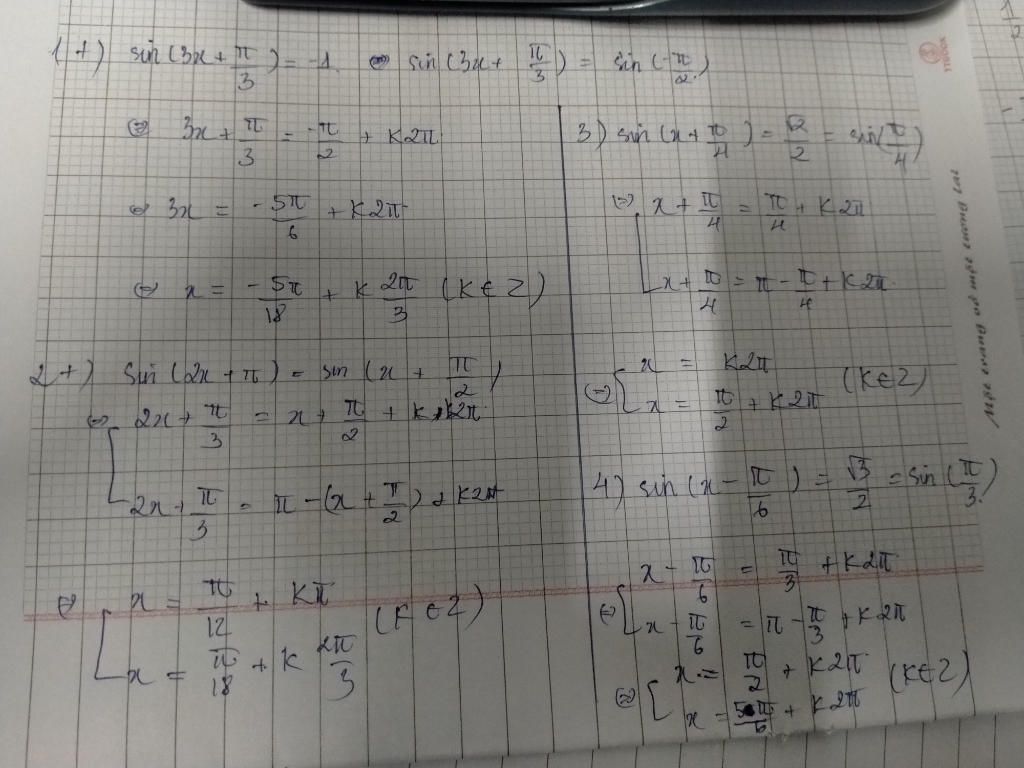 1 +) sin(3x + π/3) = -1 ⇔ sin(3x + π/3) = sin(-π/2)
⇔ 3x + π/3 = -π/2 + k2π
⇔ 3x = -5π/6 + k2π
⇔ x = -5π/18 + k 2π/3 (k ∈ Z)
2 +) sin(2x + π) = sin(x + π/2)
⇔ [ 2x + π/3 = x + π/2 + k2π
2x + π/3 = π - (x + π/2) + k2π
⇔ [ x = π/12 + kπ
x = π/18 + k 2π/3 (k ∈ Z)
3) sin(x + π/4) = √2/2 = sin(π/4)
⇔ [ x + π/4 = π/4 + k2π
x + π/4 = π - π/4 + k2π
⇔ [ x = k2π
x = π/2 + k2π (k ∈ Z)
4) sin(x - π/6) = √3/2 = sin(π/3)
⇔ [ x - π/6 = π/3 + k2π
x - π/6 = π - π/3 + k2π
⇔ [ x = π/2 + k2π
x = 5π/6 + k2π (k ∈ Z)